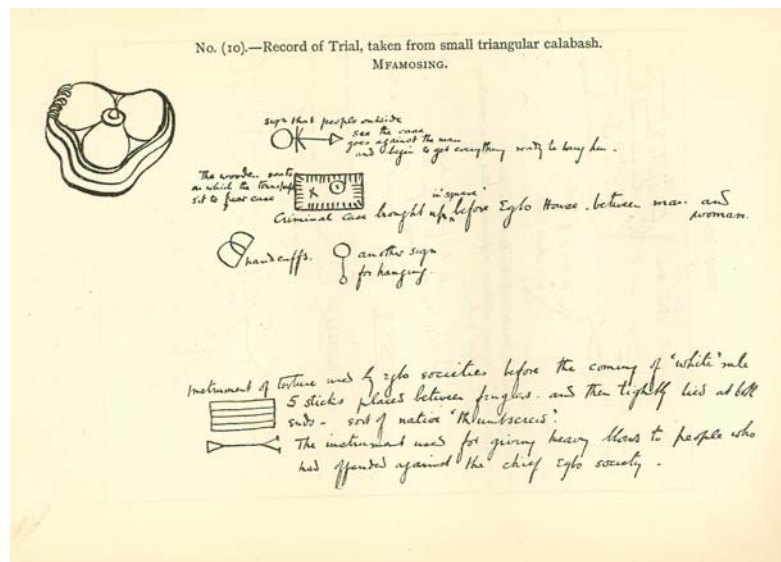 No. (10).—Record of Trial, taken from small triangular calabash.
MFAMOSING.
sign that people outside
see the case
goes against the man
and begin to get everything ready to hang him.
The wooden seats
on which the
sit to hear case
"in square"
Criminal case brought up before Egbo House. between man and
woman.
handcuffs.
another sign
for hanging.
Instrument of torture used by Egbo societies before the coming of "white" rule
5 sticks placed between fingers. and then tightly tied at both
ends - sort of native "thumbscrew".
The instrument used for giving heavy blows to people who
had offended against the chief Egbo society.